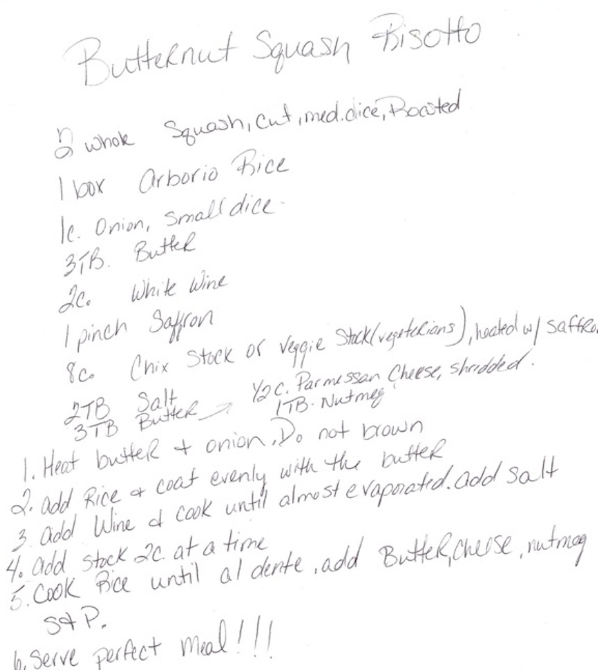 Butternut Squash Risotto
2 whole Squash, cut, med. dice, Roasted
1 box Arborio Rice
1c. Onion, small dice.
3TB. Butter
2c. White Wine
1 pinch Saffron
8c. Chix Stock or Veggie Stock (vegeterians), heated w/ saffron
2TB Salt
3TB Butter → 1/2 c. Parmessan Cheese, shredded.
1TB. Nutmeg
1. Heat butter + onion. Do not brown
2. add Rice + coat evenly with the butter
3. add Wine & cook until almost evaporated. add salt
4. add stock 2c. at a time
5. Cook Rice until al dente, add Butter, cheese, nutmeg
S+P.
6. Serve perfect meal!!!